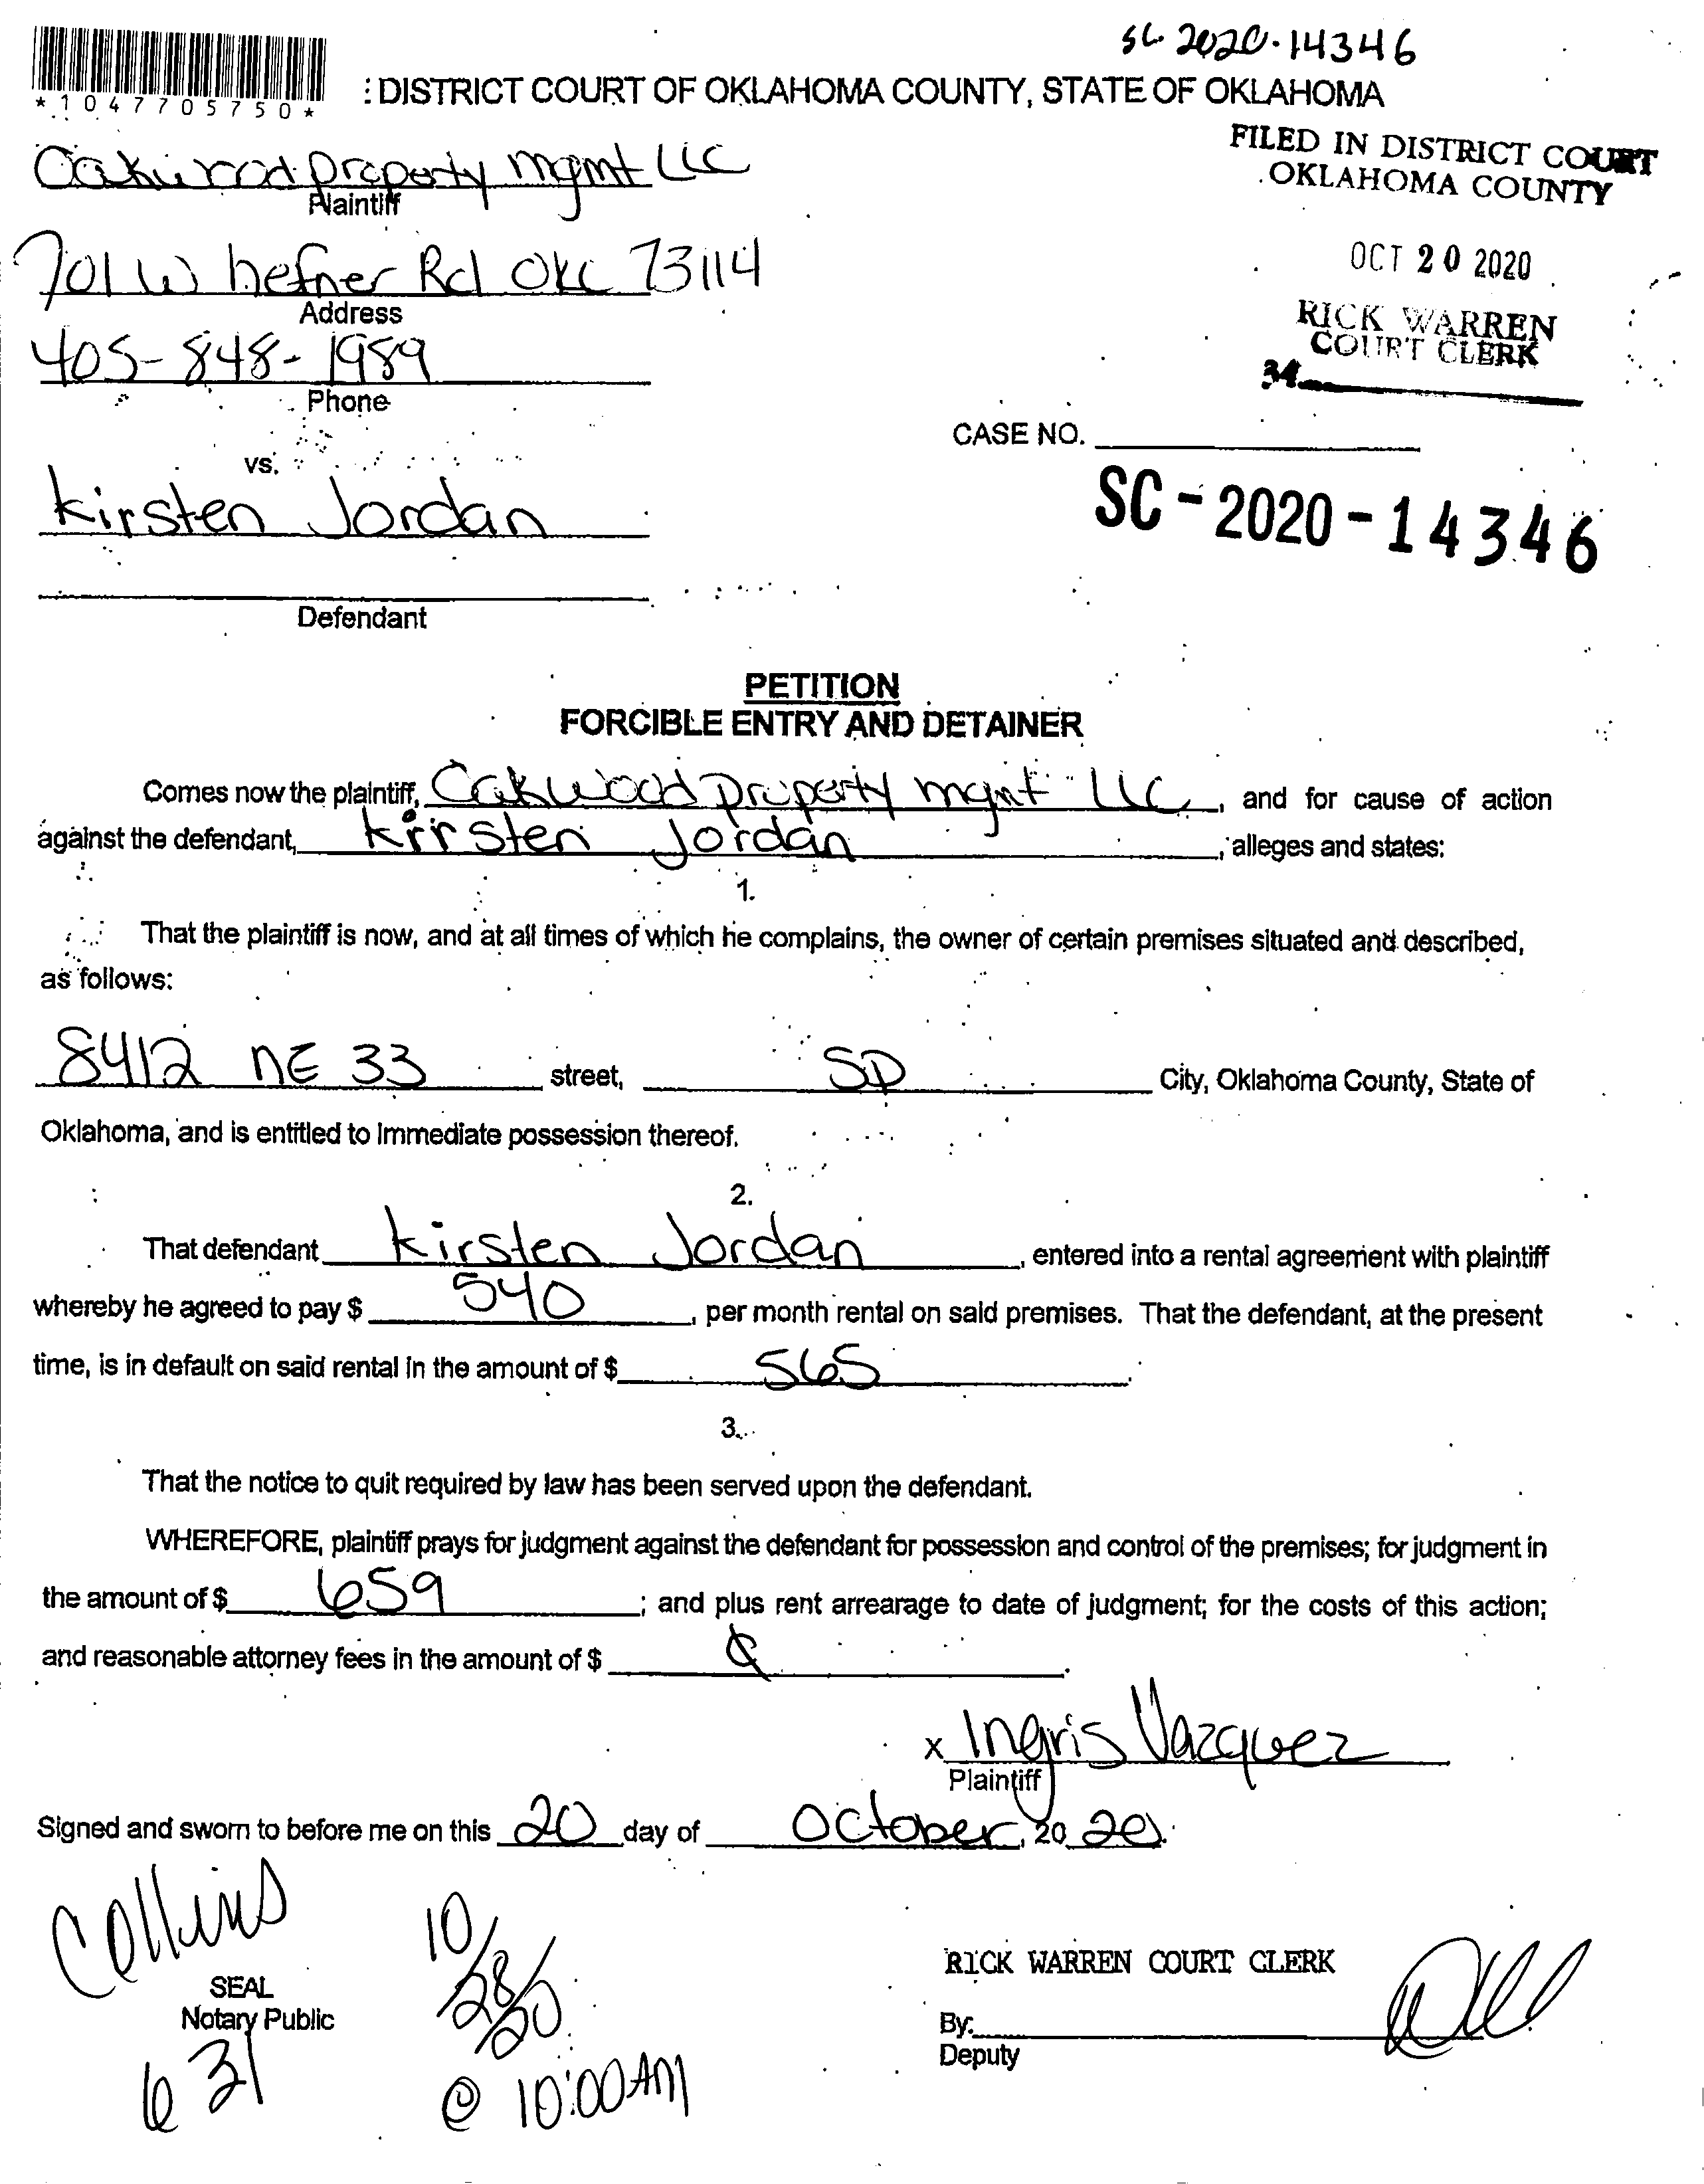 SC-2020-14346
*1047705750*
: DISTRICT COURT OF OKLAHOMA COUNTY, STATE OF OKLAHOMA
Oakwood property mgmt LLC
Plaintiff
FILED IN DISTRICT COURT
OKLAHOMA COUNTY
701 W hefner Rd OKC 73114
Address
OCT 20 2020
405-848-1989
Phone
RICK WARREN
COURT CLERK
34
CASE NO.
vs.
Kirsten Jordan
SC-2020-14346
Defendant
PETITION
FORCIBLE ENTRY AND DETAINER
Comes now the plaintiff, Oakwood property mgmt LLC, and for cause of action
against the defendant, Kirsten Jordan, alleges and states:
1.
That the plaintiff is now, and at all times of which he complains, the owner of certain premises situated and described,
as follows:
8412 NE 33 street, SD City, Oklahoma County, State of
Oklahoma, and is entitled to immediate possession thereof.
2.
That defendant Kirsten Jordan, entered into a rental agreement with plaintiff
whereby he agreed to pay $ 540, per month rental on said premises. That the defendant, at the present
time, is in default on said rental in the amount of $ 565.
3.
That the notice to quit required by law has been served upon the defendant.
WHEREFORE, plaintiff prays for judgment against the defendant for possession and control of the premises; for judgment in
the amount of $ 659; and plus rent arrearage to date of judgment; for the costs of this action;
and reasonable attorney fees in the amount of $
x Ingris Vazquez
Plaintiff
Signed and sworn to before me on this 20 day of October, 20 20.
Collins
SEAL
Notary Public
631
10/28/20
@ 10:00AM
RICK WARREN COURT CLERK
By:
Deputy